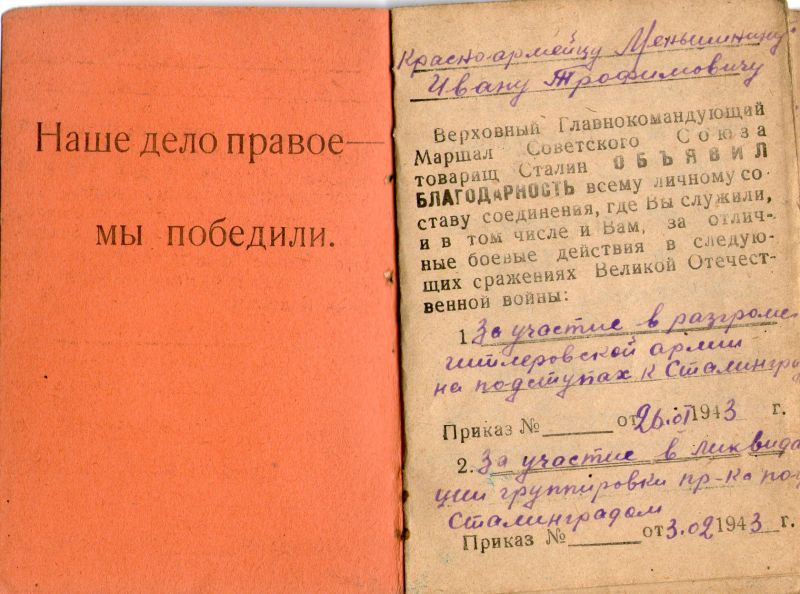 Наше дело правое—
мы победили.
Красноармейцу Меньшинину
Ивану Трофимовичу
Верховный Главнокомандующий
Маршал Советского Союза
товарищ Сталин ОБЪЯВИЛ
БЛАГОДАРНОСТЬ всему личному со
ставу соединения, где Вы служили,
и в том числе и Вам, за отлич-
ные боевые действия в следую-
щих сражениях Великой Отечест-
венной войны:
1. За участие в разгроме
гитлеровской армии
на подступах к Сталинград
Приказ № от 26.01 1943 г.
2. За участие в ликвида
ции группировки пр-ка под
Сталинградом
Приказ № от 3.02 1943 г.